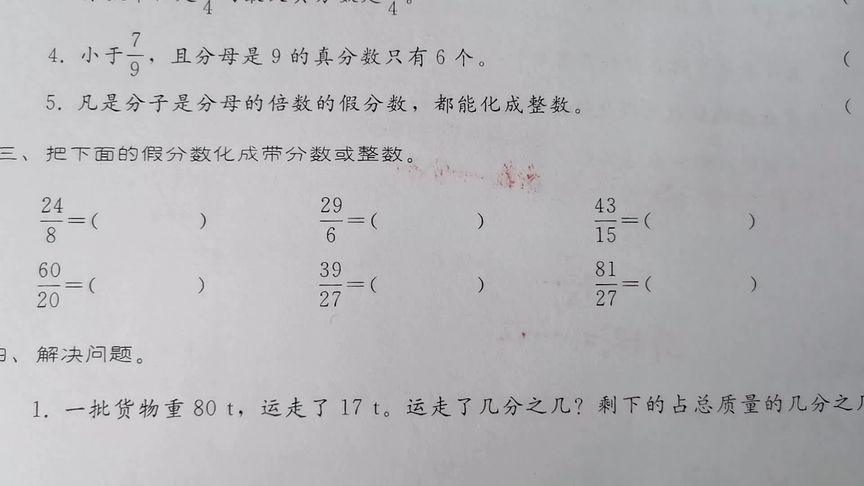 4. 小于7/9，且分母是 9 的真分数只有 6 个。(
5. 凡是分子是分母的倍数的假分数，都能化成整数。(
三、把下面的假分数化成带分数或整数。
24/8=(  ) 29/6=(  ) 43/15=(  )
60/20=(  ) 39/27=(  ) 81/27=(  )
、解决问题。
1. 一批货物重 80 t，运走了 17 t。运走了几分之几？剩下的占总质量的几分之几